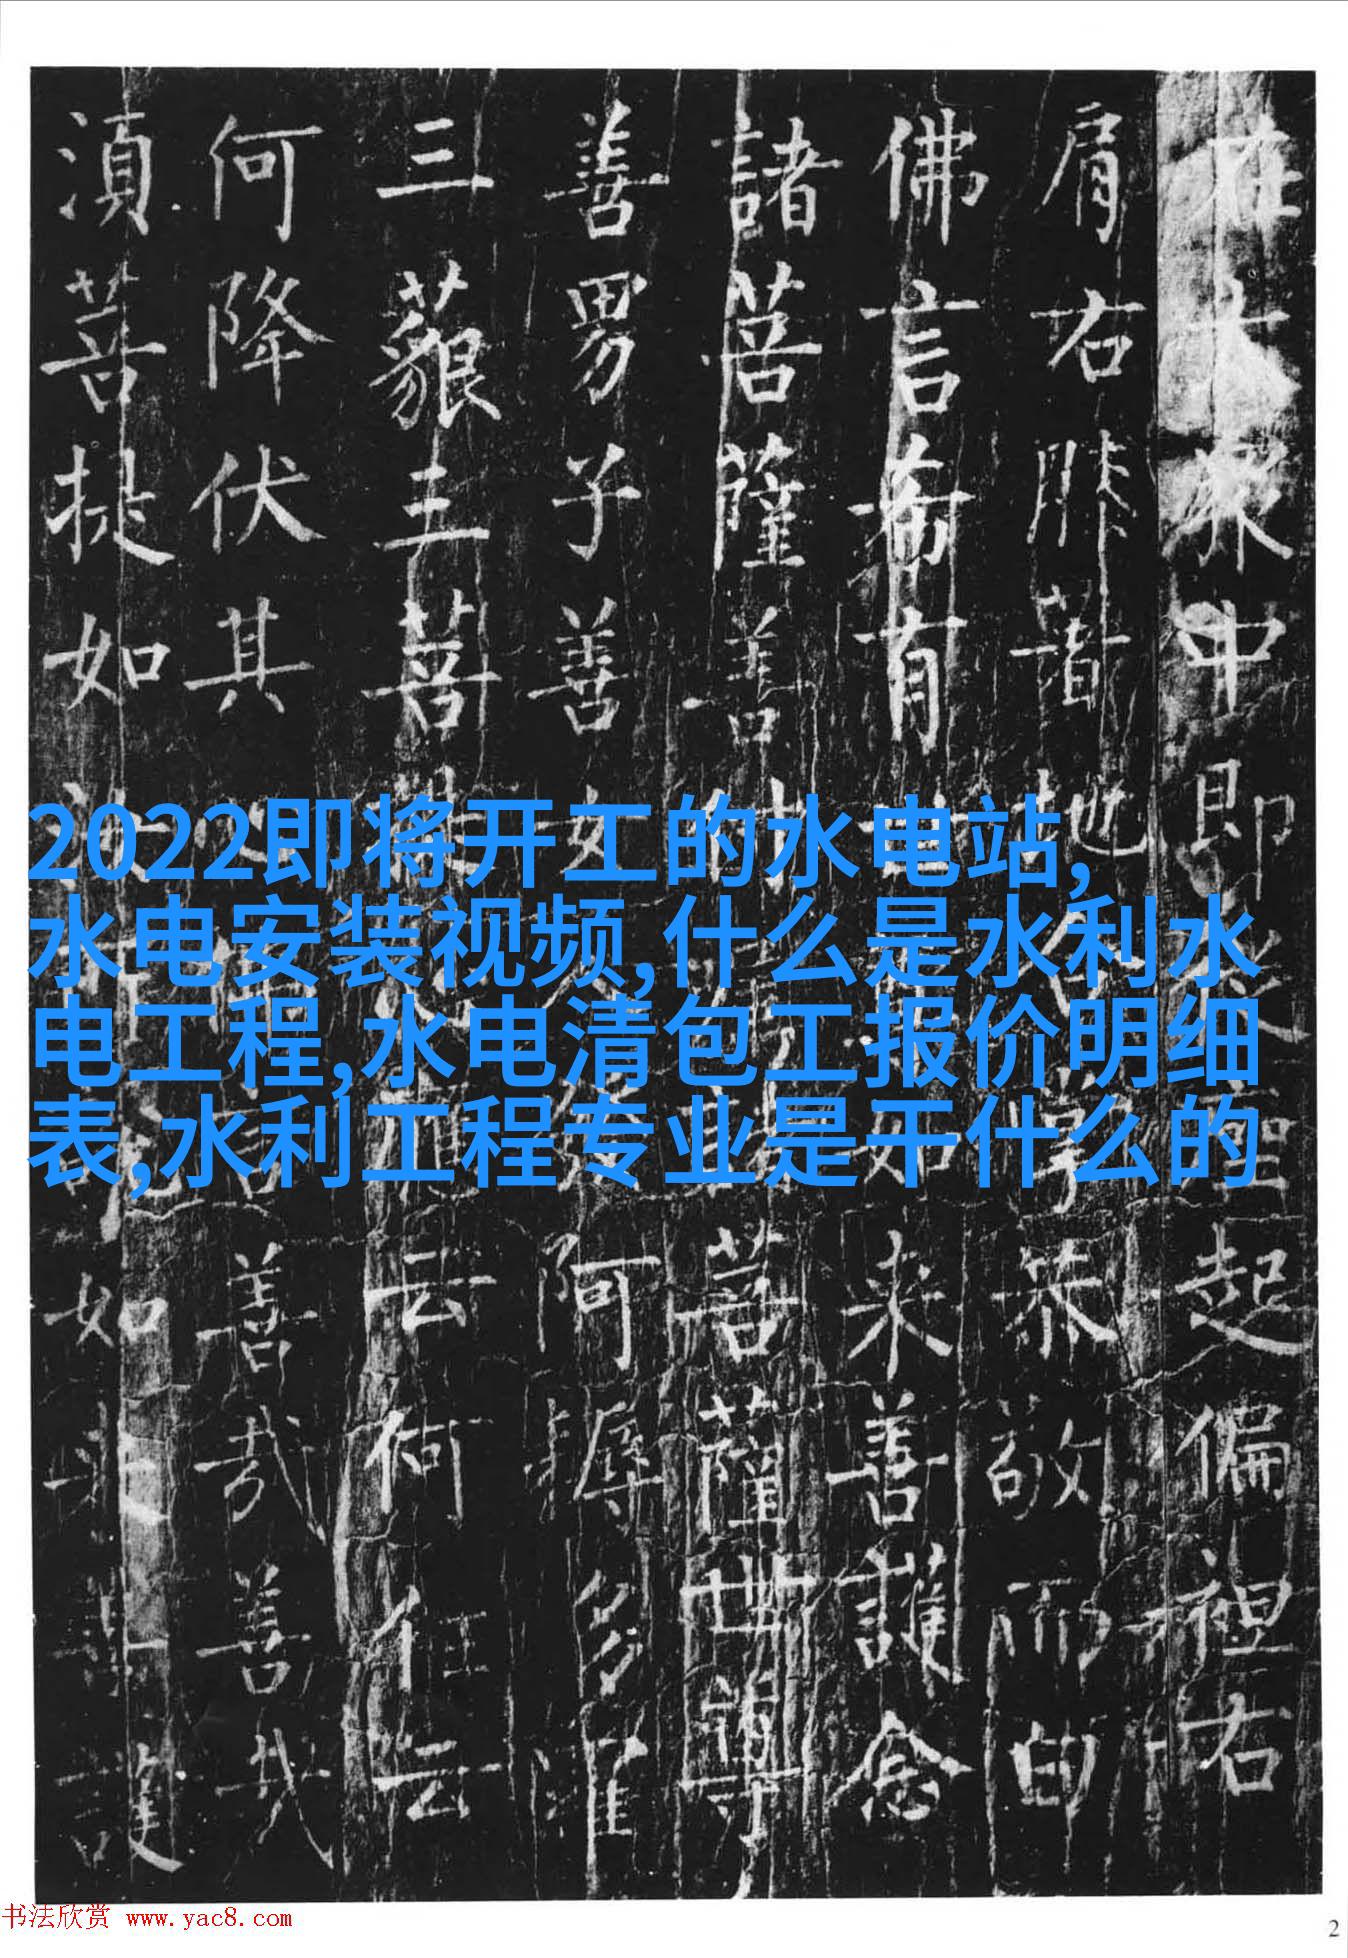 在大眾中即從座起偏袒右
肩右膝著地合掌恭敬而白
佛言希有世尊如來善護念
諸菩薩善付囑諸菩薩世尊
善男子善女人發阿耨多羅
三藐三菩提心應云何住云
何降伏其心佛言善哉善哉
湏菩提如汝所說如來善護
2022即将开工的水电站,
水电安装视频,什么是水利水
电工程,水电清包工报价明细
表,水利工程专业是干什么的
书法欣赏 www.yac8.com
2